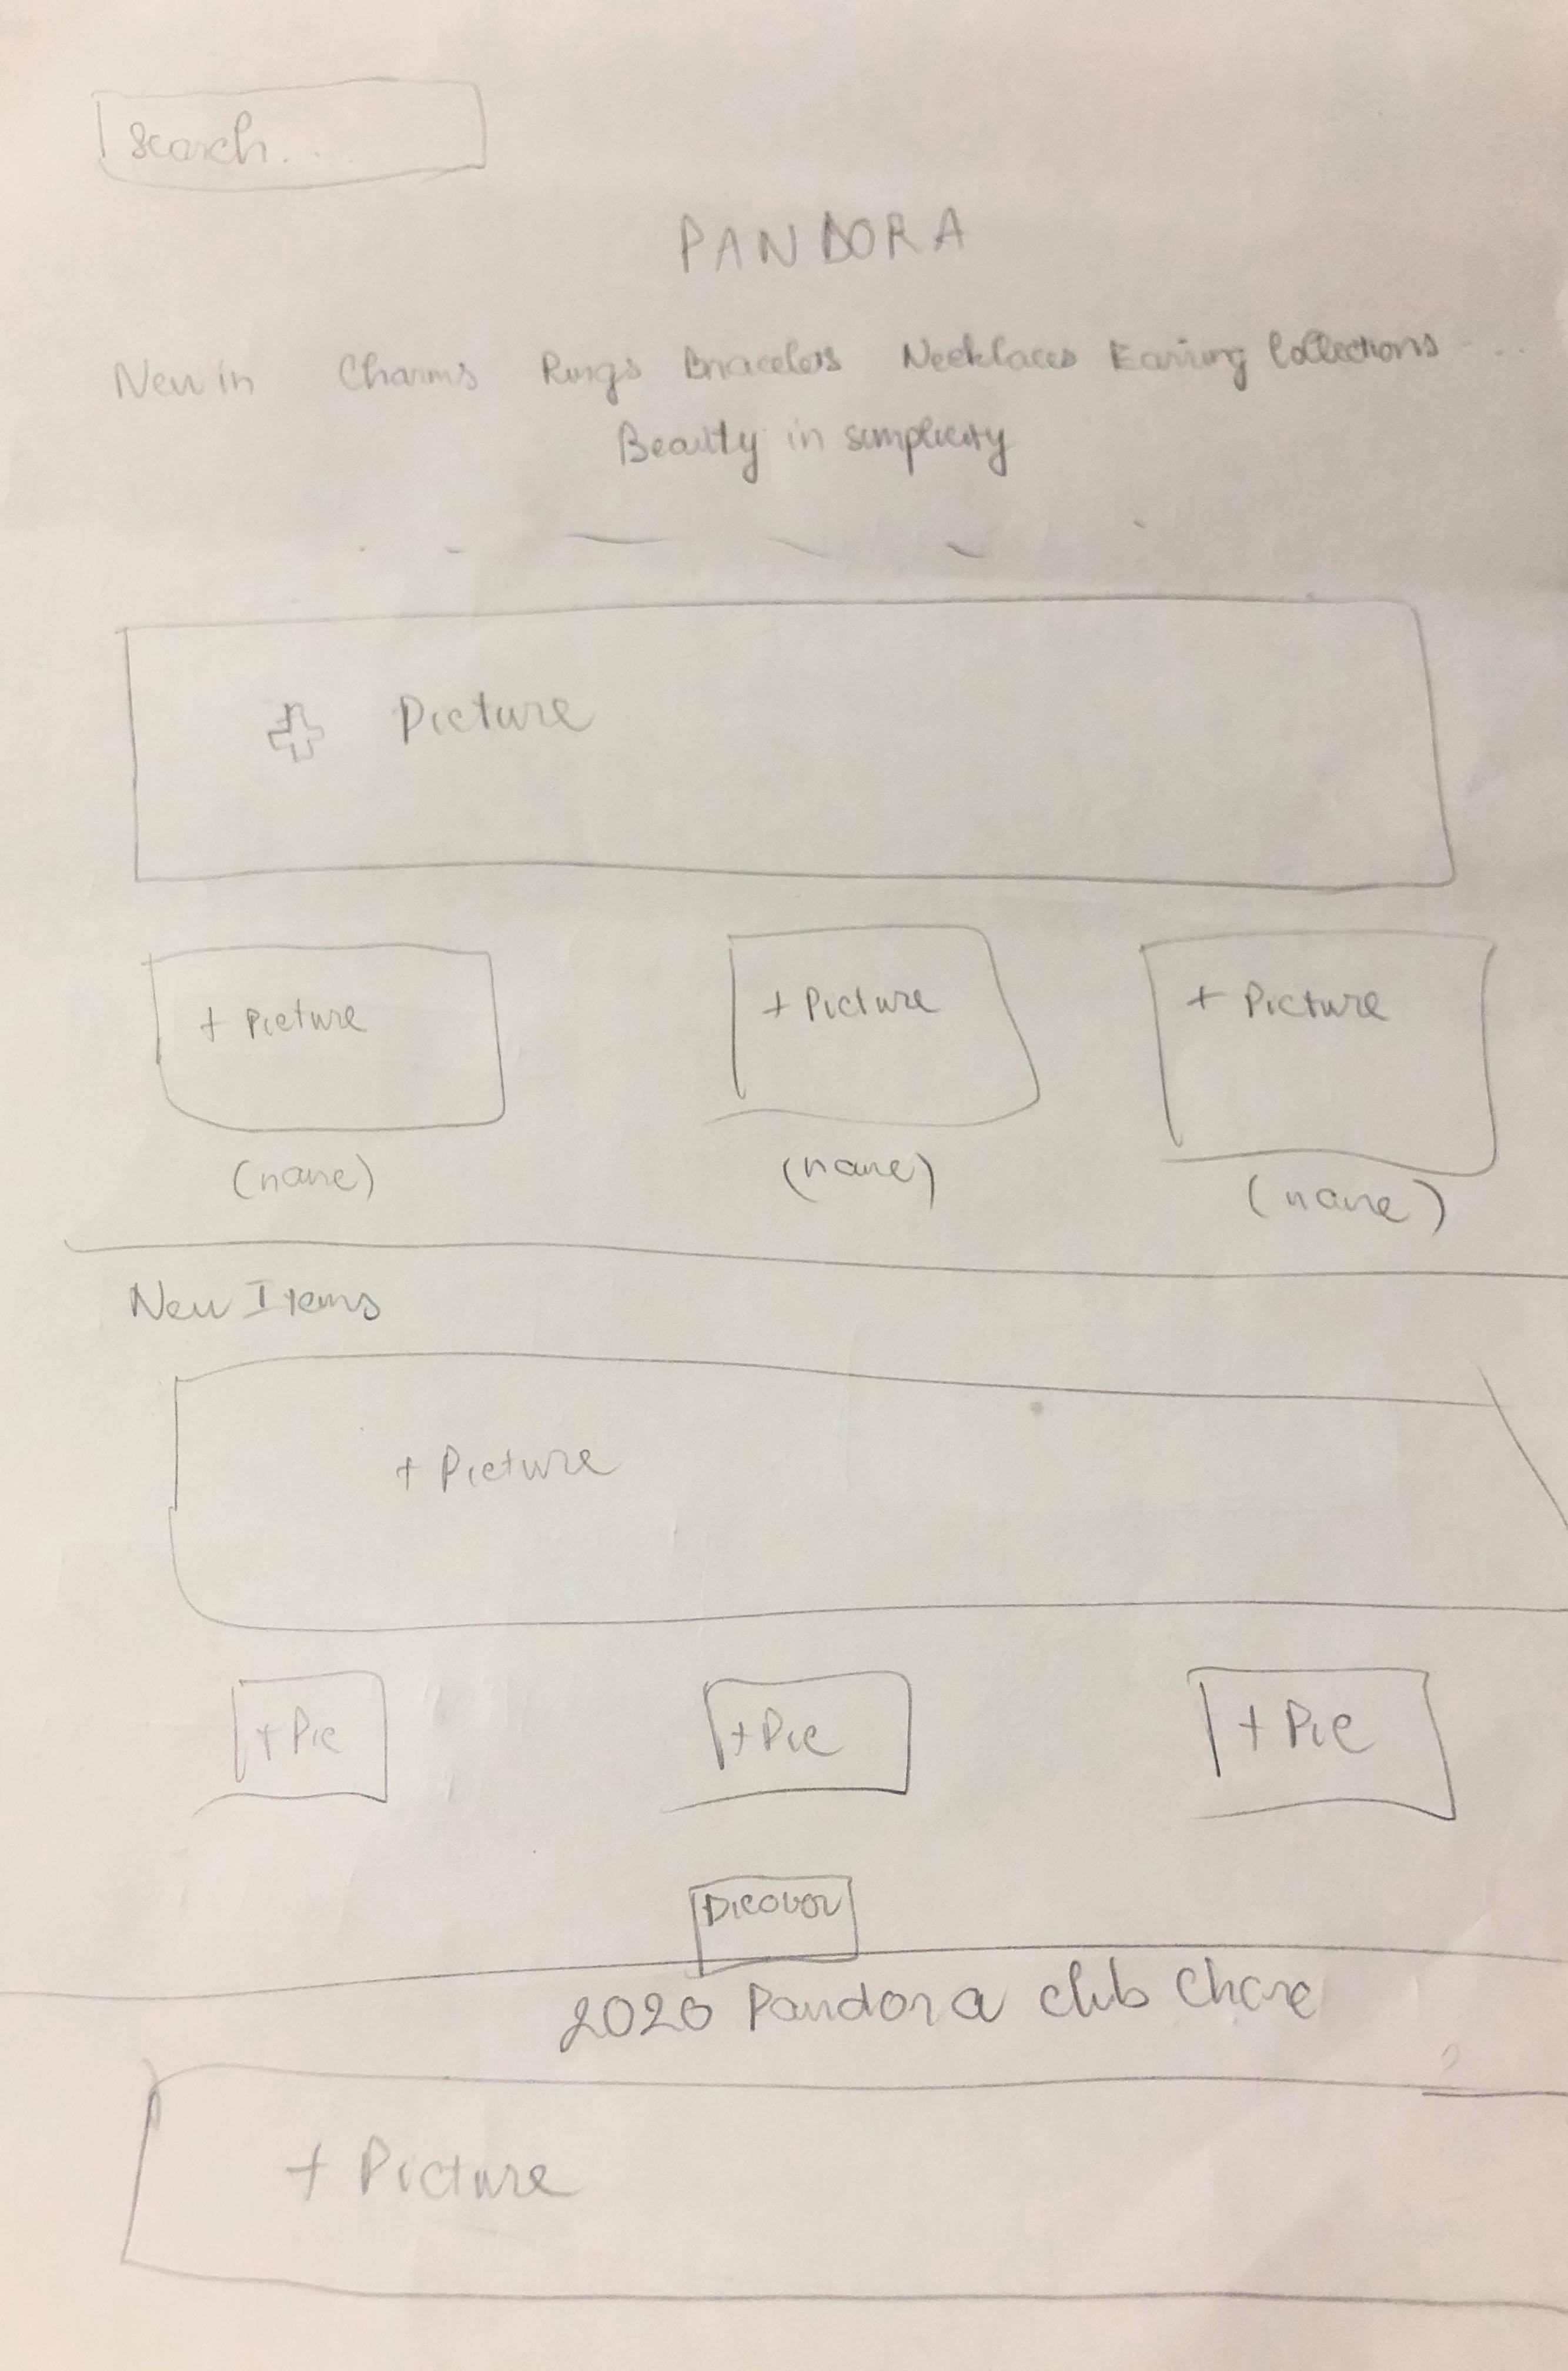 Search...
PANDORA
New in Charms Rings Bracelets Necklaces Earring Collections ...
Beauty in simplicity
Picture
+ Picture + Picture + Picture
(name) (name) (name)
New Items
+ Picture
+ Pic + Pic + Pic
Dicover
2020 Pandora club
+ Picture